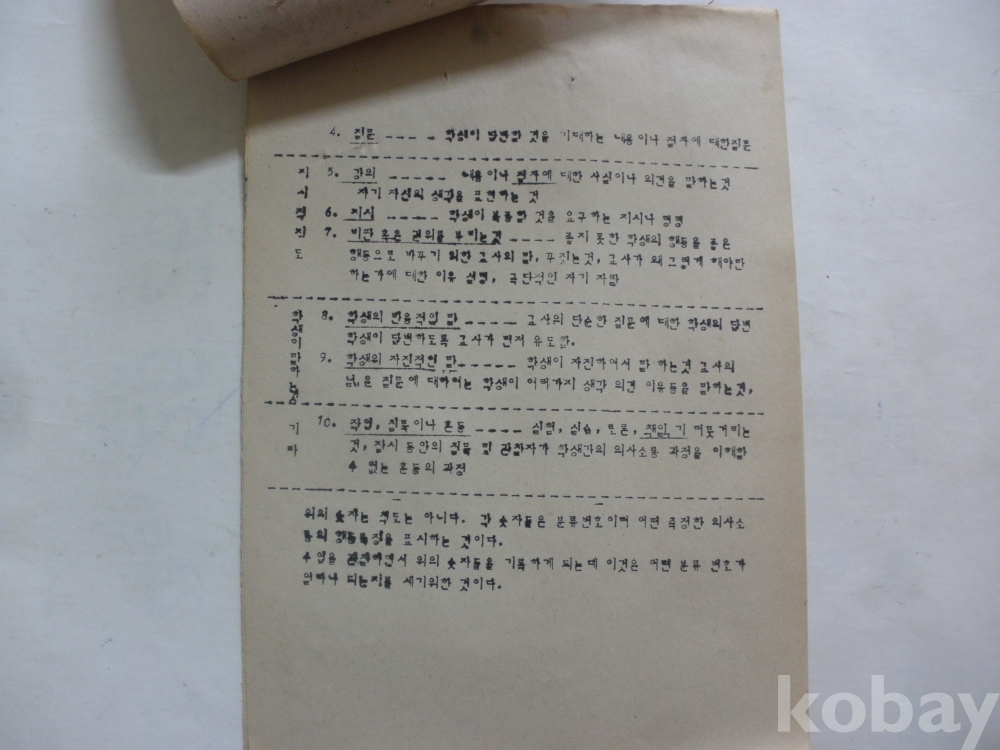 4. 질문 ---- 학생이 답변할 것을 기대하는 내용이나 절차에 대한질문
지 5. 강의 ----- 내용이나 절차에 대한 사실이나 의견을 말하는것
시 자기 자신의 생각을 표현하는 것
적 6. 지시 ----- 학생이 복종할 것을 요구하는 지시나 명령
진 7. 비판 혹은 권위를 부리는것 ---- 좋지 못한 학생의 행동을 좋은
도 행동으로 바꾸기 위한 교사의 말, 꾸짓는것, 교사가 왜 그렇게 해야만
하는가에 대한 이유 설명, 극단적인 자기 자랑
학생이말하는것
8. 학생의 반응적인 말 ----- 교사의 단순한 질문에 대한 학생의 답변
학생이 답변하도록 교사가 먼저 유도함.
9. 학생의 자진적인 말 ----- 학생이 자진하여서 말 하는것 교사의
넓은 질문에 대하여는 학생이 여러가지 생각 의견 이유등을 말하는것,
기 10. 작업, 침묵이나 혼동 ---- 실험, 실습, 토론, 책읽기 머뭇거리는
타 것, 잠시 동안의 침묵 및 관찰자가 학생간의 의사소통 과정을 이해할
수 없는 혼동의 과정
위의 숫자는 척도는 아니다. 각 숫자들은 분류번호이며 어떤 측정한 의사소
통의 행동특징을 표시하는 것이다.
수업을 관찰하면서 위의 숫자들을 기록하게 되는데 이것은 어떤 분류 번호가
얼마나 되는지를 세기위한 것이다.
kobay